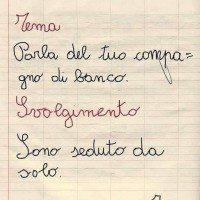 Tema
Parla del tuo compa=
gno di banco.
Svolgimento
Sono seduto da
solo.